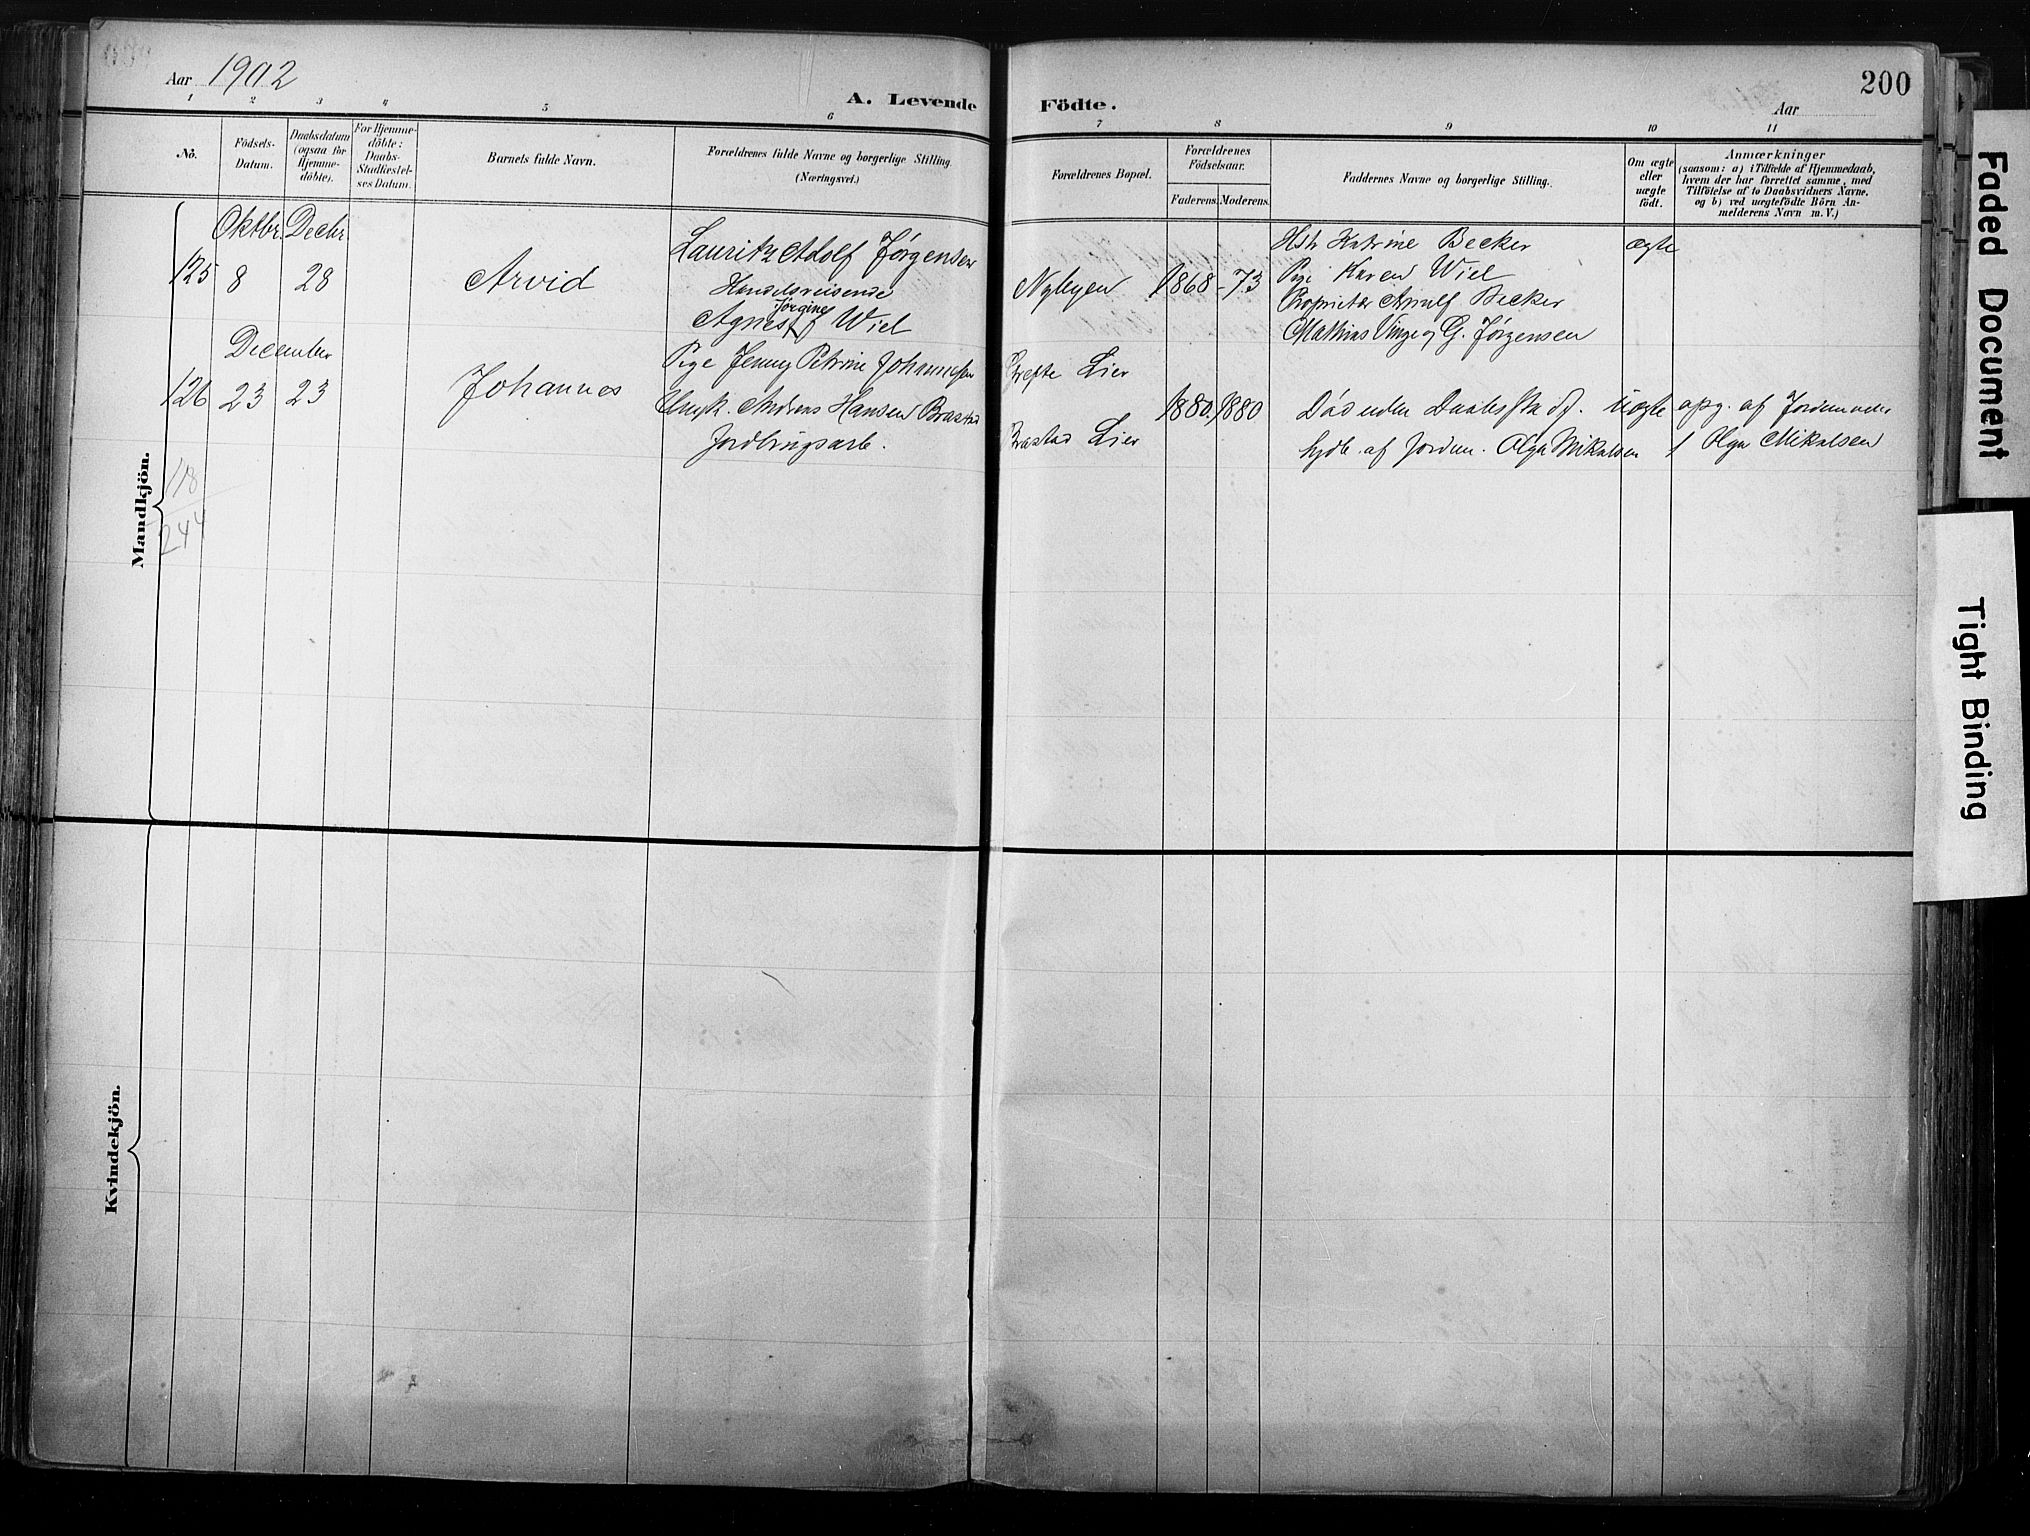 Aar 1902
A. Levende Födte.
Aar
200
1 2 3 4 5 6 7 8 9 10 11
No.
Födsels-Datum.
Daabsdatum (ogsaa for Hjemme-döbte).
For Hjemme-döbte: Daabs-Stadfæstel-ses Datum.
Barnets fulde Navn.
Forældrenes fulde Navne og borgerlige Stilling. (Næringsvei.)
Forældrenes Bopæl.
Forældrenes Födselsaar.
Faderens. Moderens.
Faddernes Navne og borgerlige Stilling.
Om ægte eller uægte födt.
Anmærkninger
(saasom: a) i Tilfælde af Hjemmedaab,
hvem der har forrettet samme, med
Tilföielse af to Daabsvidners Navne.
og b) ved uægtefödte Börn An-
melderens Navn m. V.)
Mandkjön.
Oktbr. Decbr.
125 8 28
Arvid
Lauritz Adolf Jørgensen
Handelsreisende
Agnes Jørgine f Wiel
Nybyen
1868 - 73
Katrine Becker
Pige Karen Wiel
Proprietær Arnulf Becker
Mathias Vinge og G. Jørgensen
ægte
December
126 23 23
Johannes
Pige Jenny Petrine Johannesen
Ungk. Andreas Hansen Brastad
Jordbrugsarb.
Lier
Brastad Lier
1880. 1880
Død uden Daabsstadf.
hjdb. af Jordm. Olga Mikalsen
uægte
opg. af Jordemoder
Olga Mikalsen
118
244
Kvindekjön.
Faded Document
Tight Binding